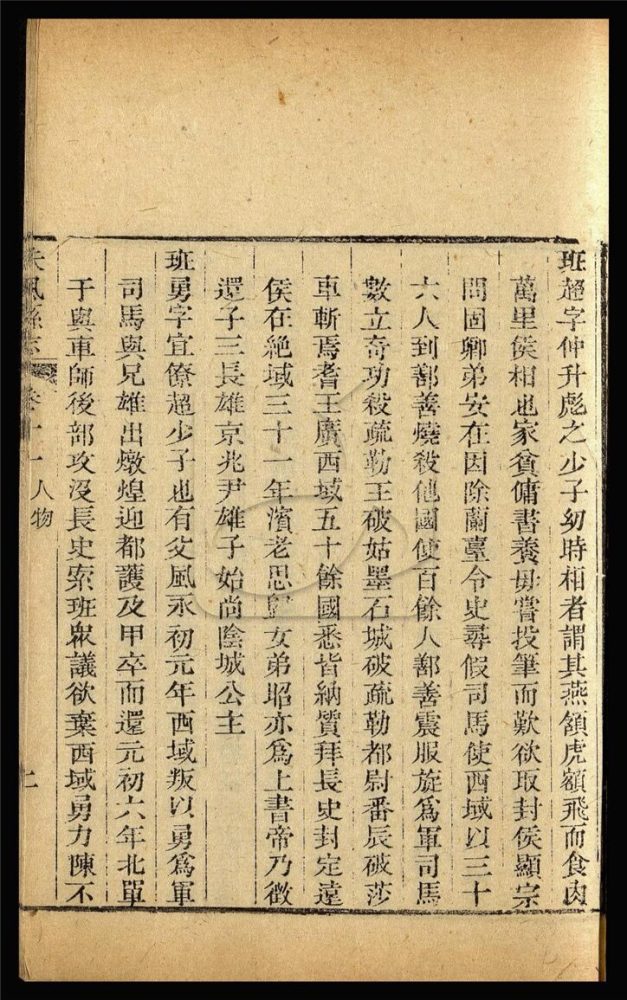 班超字仲升彪之少子幼時相者謂其燕頷虎額飛而食肉
萬里侯相也家貧傭書養母嘗投筆而歎欲取封侯顯宗
問固卿弟安在因除蘭臺令史尋假司馬使西域以三十
六人到鄯善燒殺他國使百餘人鄯善震服旋為軍司馬
數立奇功殺疏勒王破姑墨石城破疏勒都尉番辰破莎
車斬焉耆王廣西域五十餘國悉皆納質拜長史封定遠
侯在絶域三十一年濱老思歸女弟昭亦為上書帝乃徵
還子三長雄京兆尹雄子始尚陰城公主
班勇字宜僚超少子也有父風永初元年西域叛以勇為軍
司馬與兄雄出燉煌迎都護及甲卒而還元初六年北單
于與車師後部攻没長史索班衆議欲棄西域勇力陳不
扶風縣志 卷十一 人物 二